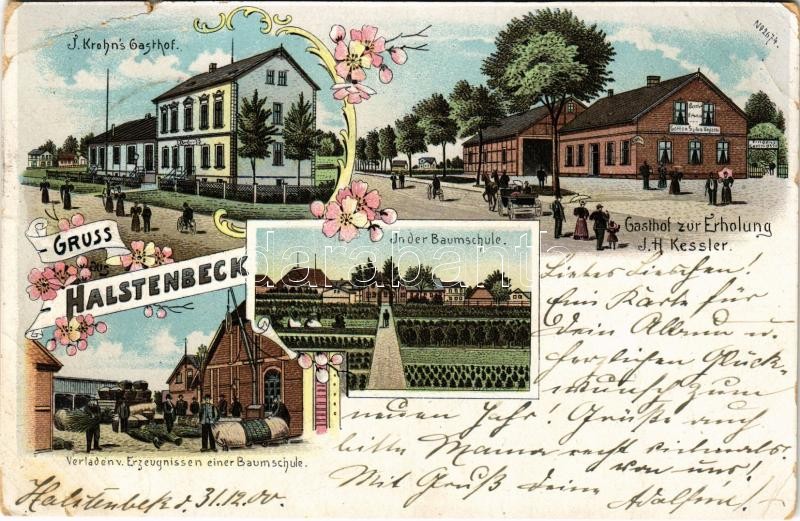 J. Krohn's Gasthof.
No 2674.
Gasthof zur Erholung
J. H. Kessler.
GRUSS
aus
HALSTENBECK
In der Baumschule.
Verladen v. Erzeugnissen einer Baumschule.
Liebes Lieschen!
Eine Karte für
Dein Album u.
herzlichen Glück-
wunsch zum
neuen Jahr! Grüße auch
bitte Mama recht vielmals
von uns!
Mit Gruß Deine
Halstenbek d. 31.12.00.
darabanth